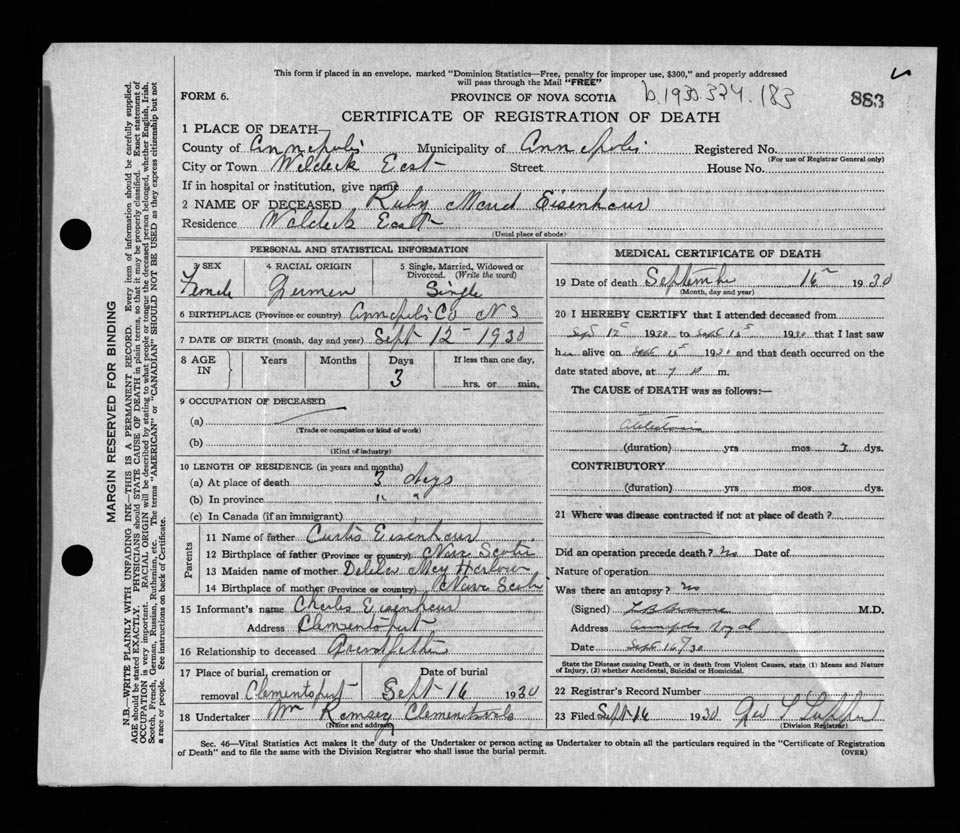 This form if placed in an envelope, marked "Dominion Statistics—Free, penalty for improper use, $300," and properly addressed
will pass through the Mail "FREE"
FORM 6.
PROVINCE OF NOVA SCOTIA
b.1930.324.183
883
CERTIFICATE OF REGISTRATION OF DEATH
1 PLACE OF DEATH—
County of Annapolis Municipality of Annapolis Registered No.
(For use of Registrar General only)
City or Town Waldeck East Street House No.
If in hospital or institution, give name
2 NAME OF DECEASED Ruby Maud Eisenhaur
Residence Waldeck East
(Usual place of abode)
PERSONAL AND STATISTICAL INFORMATION
3 SEX
Female
4 RACIAL ORIGIN
German
5 Single, Married, Widowed or
Divorced. (Write the word)
Single
6 BIRTHPLACE (Province or country) Annapolis Co N S
7 DATE OF BIRTH (month, day and year) Sept 12 - 1930
8 AGE IN
Years Months Days If less than one day,
3 hrs. or min.
9 OCCUPATION OF DECEASED
(a)
(Trade or occupation or kind of work)
(b)
(Kind of industry)
10 LENGTH OF RESIDENCE (in years and months)
(a) At place of death 3 days
(b) In province " "
(c) In Canada (if an immigrant)
Parents
11 Name of father Curtis Eisenhaur
12 Birthplace of father (Province or country) Nova Scotia
13 Maiden name of mother Delila May Harlow
14 Birthplace of mother (Province or country) Nova Scotia
15 Informant's name Charles Eisenhaur
Address Clementsport
16 Relationship to deceased Grandfather
17 Place of burial, cremation or Date of burial
removal Clementsport Sept 16 1930
18 Undertaker Wm Ramsey Clementsvale
(Name and address)
MEDICAL CERTIFICATE OF DEATH
19 Date of death September 16 1930
(Month, day and year)
20 I HEREBY CERTIFY that I attended deceased from
Sept 12 1930 to Sept 15 1930 that I last saw
her alive on Sept 15 1930 and that death occurred on
the date stated above, at 7 m.
The CAUSE of DEATH was as follows:—
Atelectasis
(duration) yrs mos 3 dys.
CONTRIBUTORY
(duration) yrs mos dys.
21 Where was disease contracted if not at place of death?
Did an operation precede death? no Date of
Nature of operation
Was there an autopsy? no
(Signed) M.D.
Address Annapolis Royal
Date Sept 16/30
State the Disease causing Death, or in death from Violent Causes, state (1) Means and Nature
of Injury, (2) whether Accidental, Suicidal or Homicidal.
22 Registrar's Record Number
23 Filed Sept 16 1930 Geo
(Division Registrar)
Sec. 46—Vital Statistics Act makes it the duty of the Undertaker or person acting as Undertaker to obtain all the particulars required in the "Certificate of Registration
of Death" and to file the same with the Division Registrar who shall issue the burial permit.
(OVER)
MARGIN RESERVED FOR BINDING
N.B.—WRITE PLAINLY WITH UNFADING INK—THIS IS A PERMANENT RECORD. Every item of information should be carefully supplied.
AGE should be stated EXACTLY. PHYSICIANS should STATE CAUSE OF DEATH in plain terms, so that it may be properly classified. Exact statement of
OCCUPATION is very important. RACIAL ORIGIN will be described by stating to what people or tongue the deceased person belonged, whether English, Irish,
Scotch, French, German, Russian, Ruthenian, etc. The terms "AMERICAN" or "CANADIAN" SHOULD NOT BE USED as they express citizenship but not
a race or people. See instructions on back of Certificate.